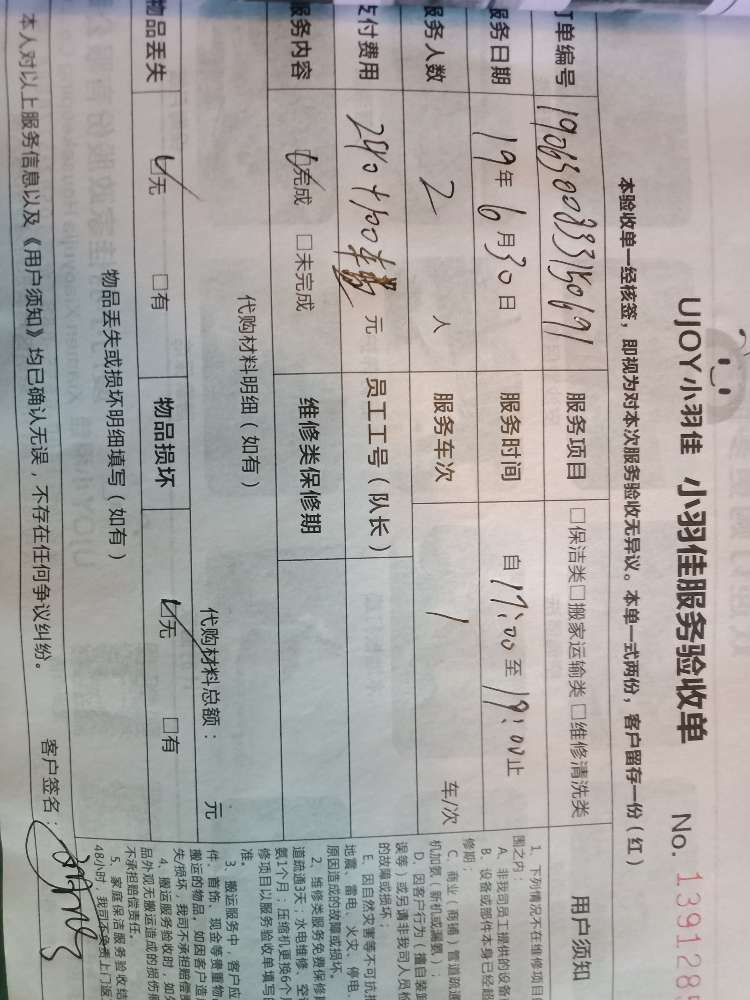 UJOY小羽佳 小羽佳服务验收单 No. 139128
本验收单一经核签，即视为对本次服务验收无异议。本单一式两份，客户留存一份（红）
订单编号 服务项目 □保洁类□搬家运输类 □维修清洗类 用户须知
服务日期 19年6月30日 服务时间 自17:00至19:00止
服务人数 2 人 服务车次 1 车/次
支付费用 元 员工工号（队长）
服务内容 完成 □未完成 维修类保修期
代购材料明细（如有） 代购材料总额： 元
物品丢失 无 □有 物品损坏 无 □有
物品丢失或损坏明细填写（如有）
本人对以上服务信息以及《用户须知》均已确认无误，不存在任何争议纠纷。 客户签名：
1、下列情况不在维修项目
围之内：
A、非我司员工提供的设备
B、设备或部件本身已经超
修期；
C、商业（商铺）管道疏通
机加氨（新机或漏氨）；
D、因客户行为（擅自装卸
误等）或另请非我司人员检
的故障或损坏；
E、因自然灾害等不可抗拒
地震、雷电、火灾、停电、
原因造成的故障或损坏。
2、维修类服务免费保修期
道疏通3天；水电维修、空
氨1个月；压缩机更换6个月
修项目以服务验收单填写
准。
3、搬运服务中，客户应
件、首饰、现金等贵重物
搬运的物品。如因客户造
失/损坏，我司不承担赔偿责
4、搬运服务验收时，如外
品外观无搬运造成的损伤痕
不承担赔偿责任。
5、家庭保洁服务验收结
48小时，我司不免费上门返